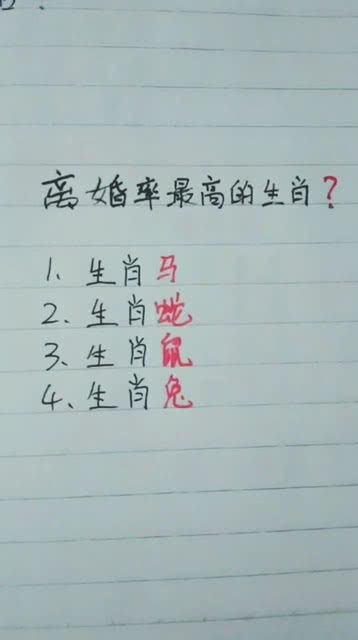 离婚率最高的生肖?
1、生肖马
2、生肖蛇
3、生肖鼠
4、生肖兔